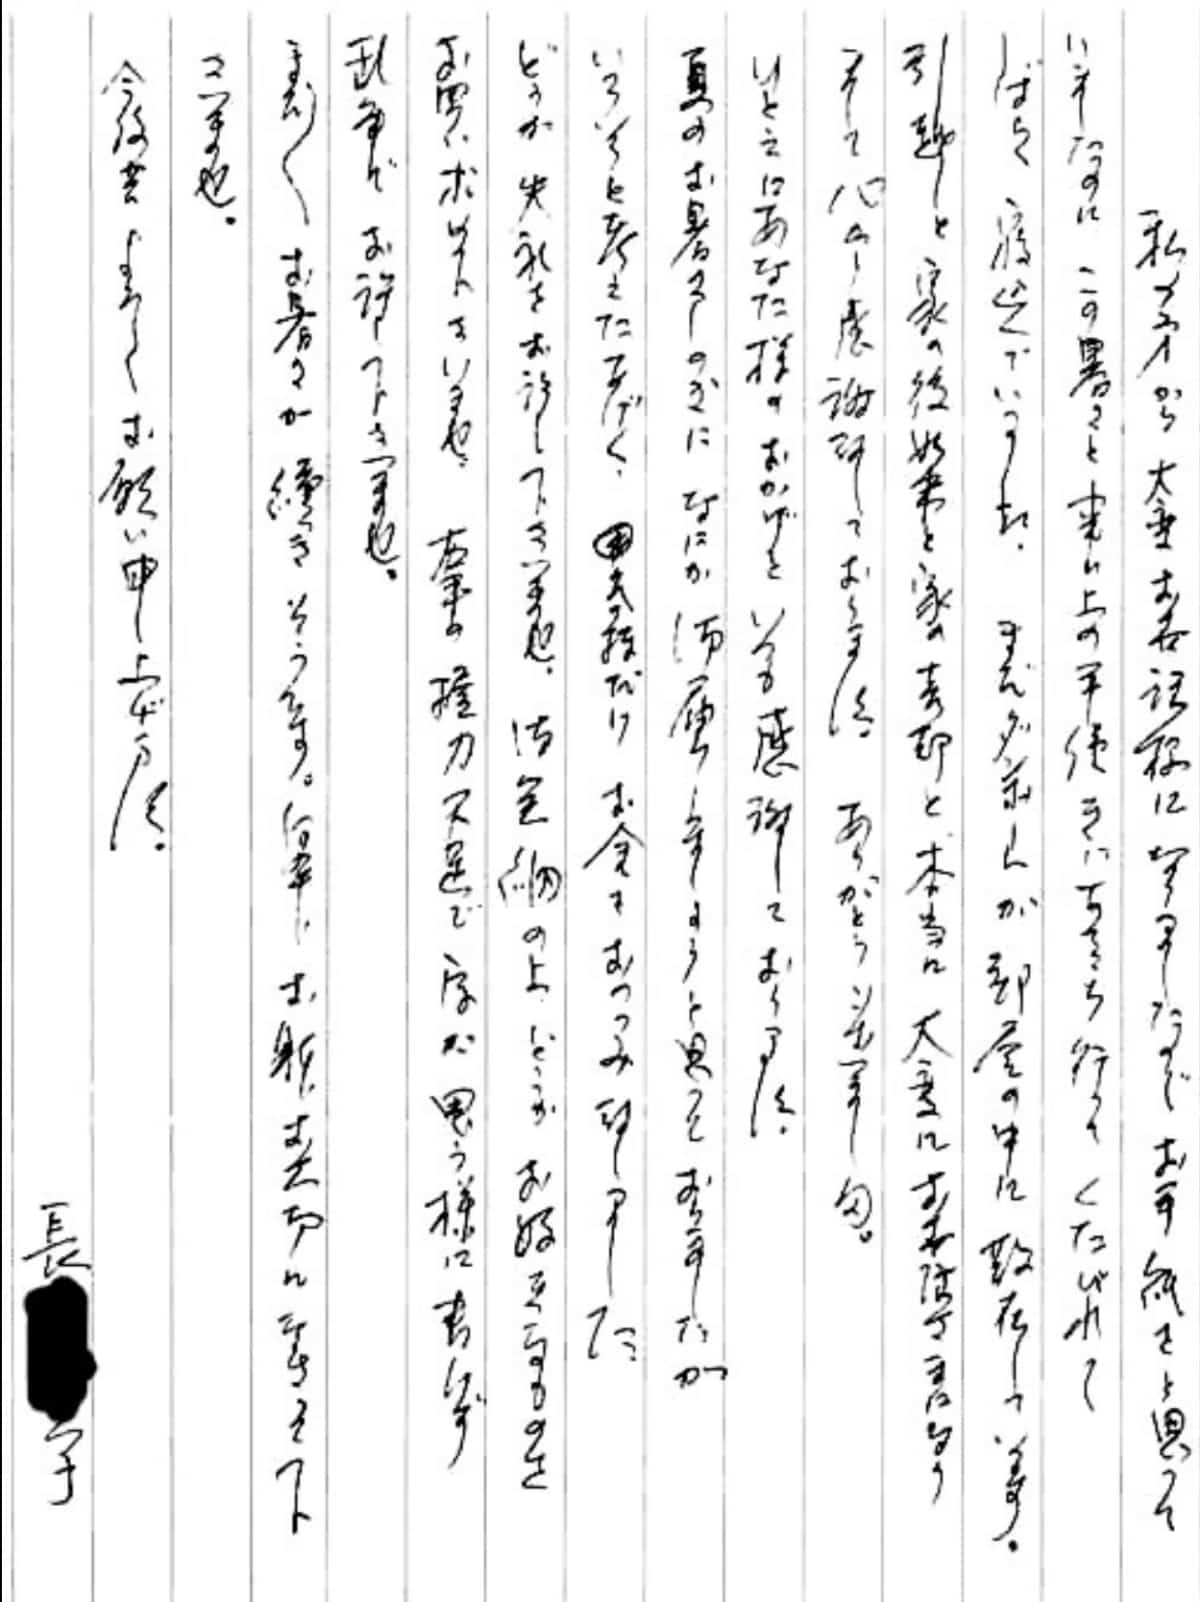 私の方から大変お世話様になりましたのでお手紙をと思って
いましたのにこの暑さと歳以上の手続きにあちち行って くたびれて
しばらく寝込んでいました。まだダンボールが部屋の中に散在しています。
引越しと家の後始末と家の売却と本当に大変にお世話様になり
まして心から感謝致しております。ありがとうございました。
ひとえにあなた様のおかげといつも感謝しております。
夏のお暑さしのぎになにか御届けしましょうと思っておりましたが
いろいろと考えたあげく、お金をおつつみ致しました
どうか失礼をお許し下さいませ。御笑納の上、どうかお好きなものを
お買いお求め下さいませ。右手の握力不足で字が思う様に書けず
乱筆でお許し下さいませ。
まだまだお暑さが続きそうです。何卒、お身体お大切になさって下
さいませ。
今後共よろしくお願い申し上げます。
長 子